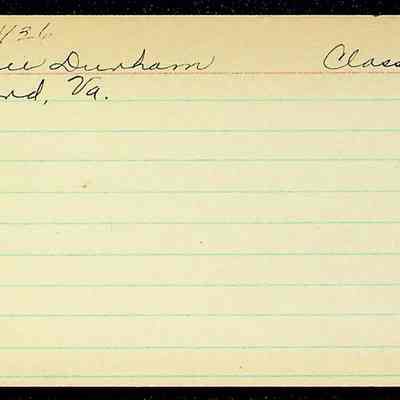 426
Durham Class
Va.